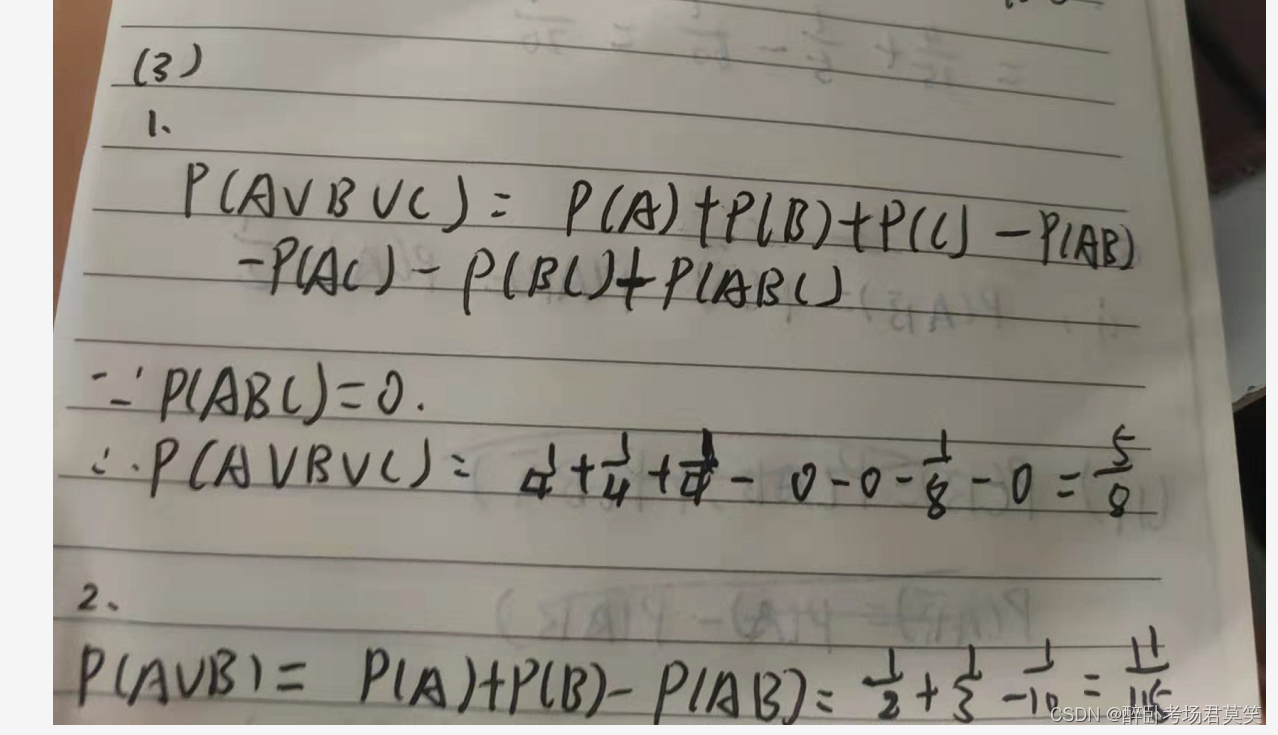 (3)
1、
P(A∪B∪C) = P(A)+P(B)+P(C) -P(AB)
-P(AC) - P(BC)+P(ABC)
∵ P(ABC)=0.
∴ P(A∪B∪C) = 1/4 + 1/4 + 1/4 - 0 - 0 - 1/8 - 0 = 5/8
2、
P(A∪B) = P(A)+P(B)- P(AB)= 1/2 + 1/3 - 1/10 = 11/15
CSDN @醉卧考场君莫笑